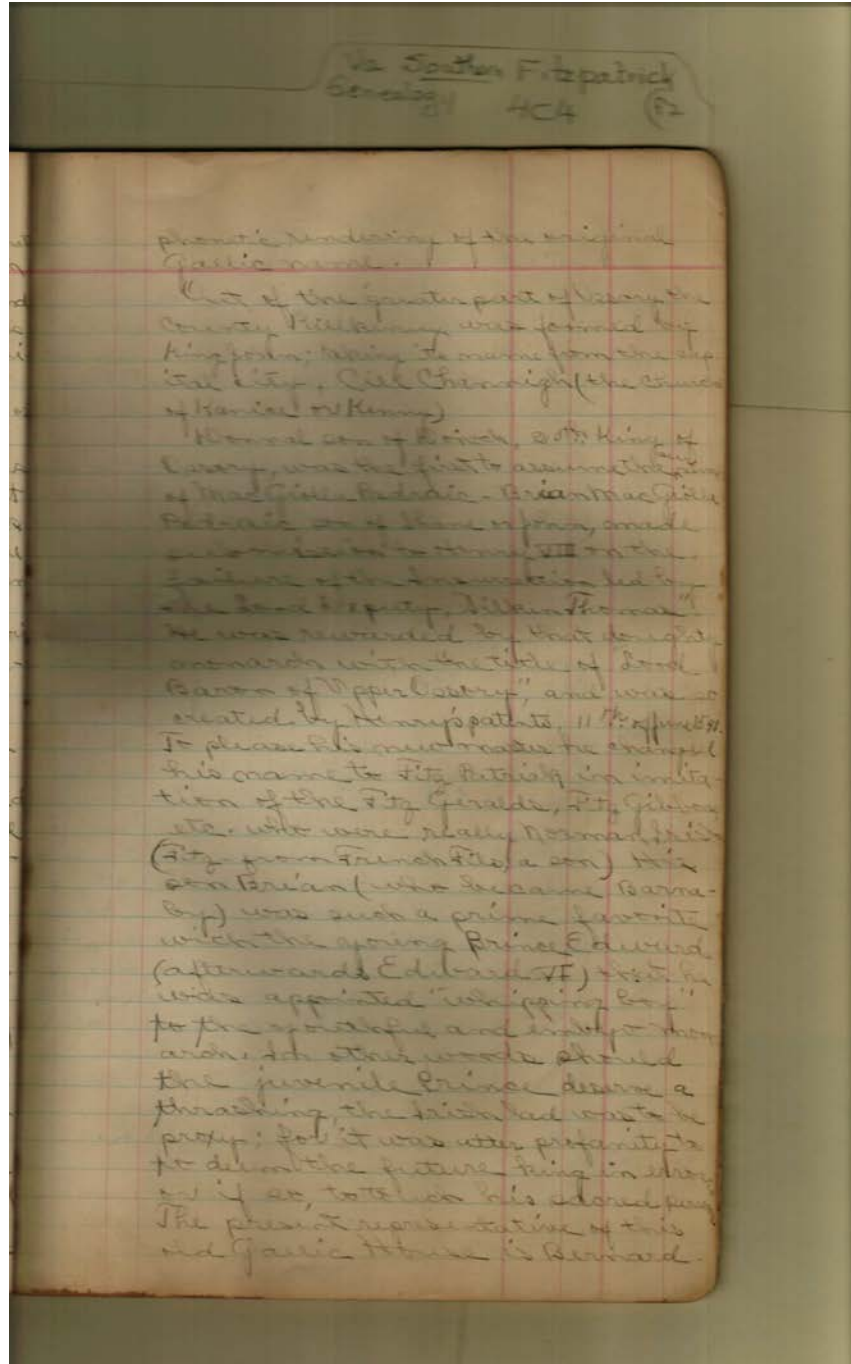 Va Southern Fitzpatrick
Genealogy 4C4 (52
phonetic rendering of the original
Gaelic name.
Out of the greater part of Ossory the
County Kilkenny was formed by
King John; taking its name from the cap-
ital city, Cill Channigh (the Church
of Kenny)
Donnal son of 20th King of
Ossory, was the first to assume the name
of MacGiolla Pedraic. Brian MacGiolla
Pedraic son of Shane or John, made
submission to Henry VIII on the
failure of the Insurrection led by
the Lord Deputy, Silken Thomas"!
he was rewarded by that doughty
monarch with the title of Lord
Baron of Upper Ossory", and was so
created by Henry's patents, 11th of June
To please his new master he changed
his name to Fitz Patrick in imita-
tion of the Fitz Geralds, Fitz Gibbon
etc. who were really Norman Irish
(Fitz from French Fils, a son) His
son Brian (who became Barna-
by) was such a prime favorite
with the young Prince Edward
(afterwards Edward VI) that he
was appointed "whipping boy"
to the youthful and embryo mon
arch. In other words should
the juvenile Prince deserve a
thrashing, the Irish lad was to be
proxy; for it was utter profanity to
to deem the future king in error
or if so, to his sacred
The present representative of this
old Gaelic House is Bernard.